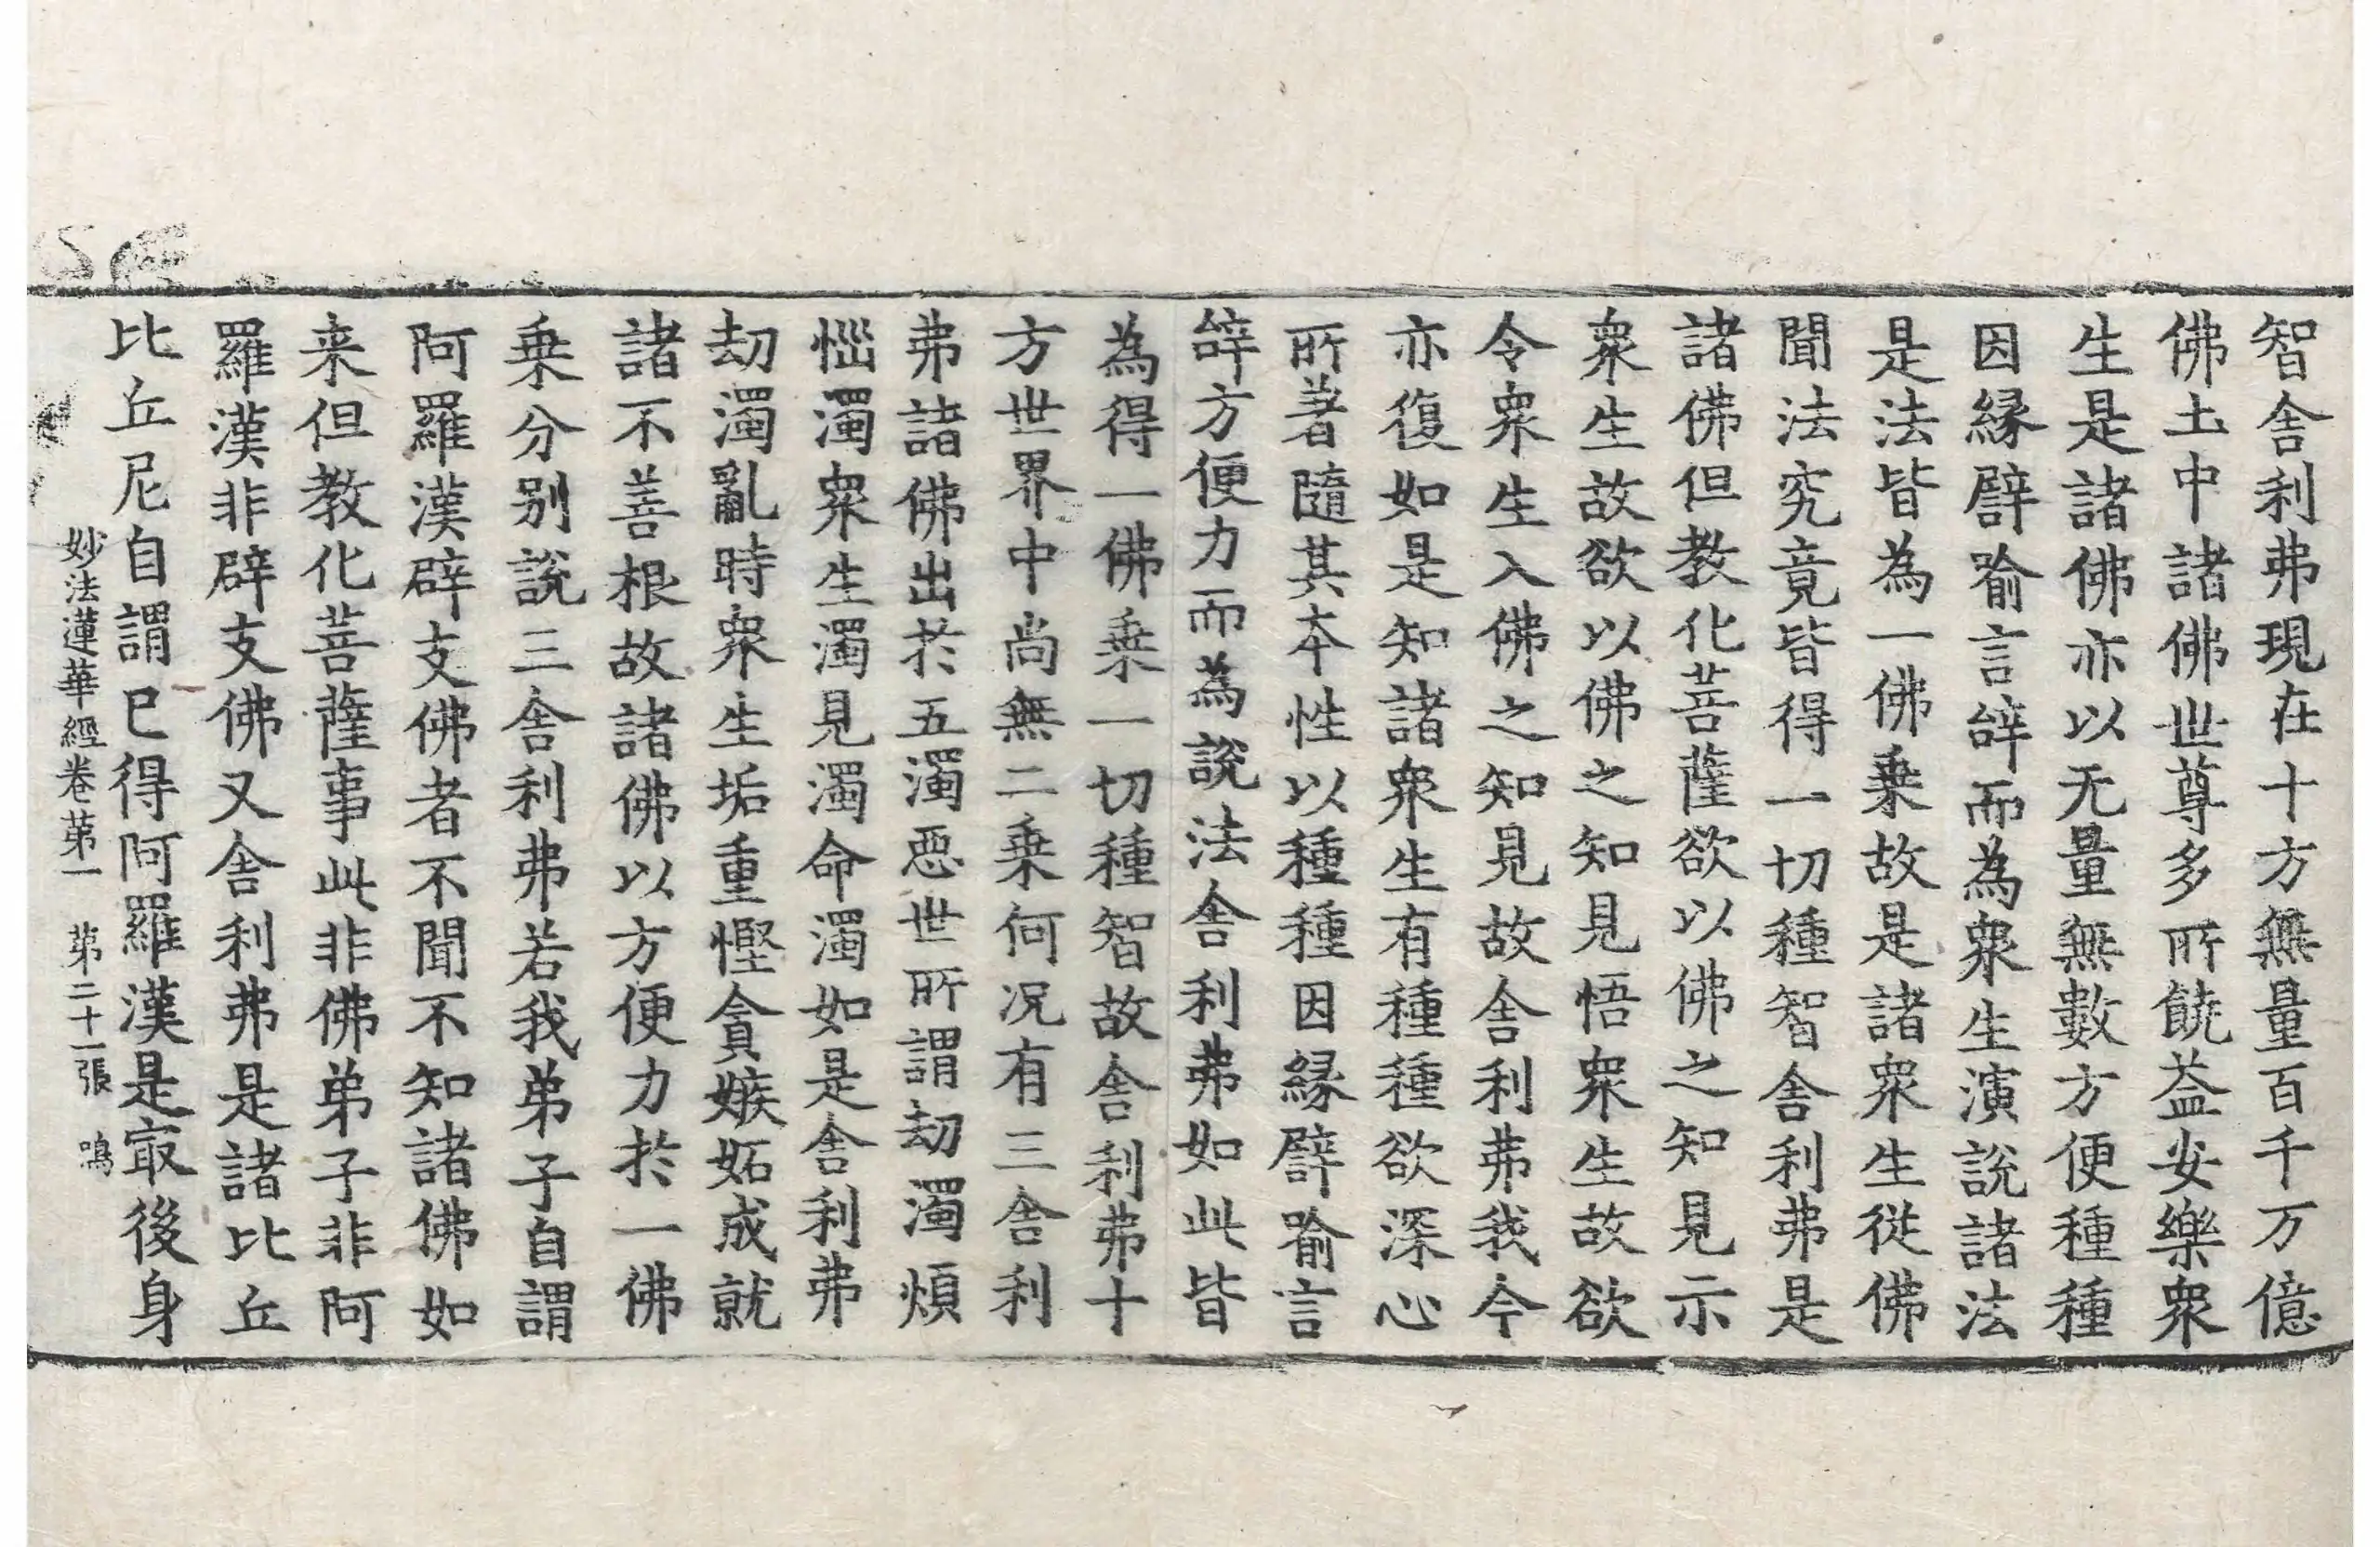 智舍利弗現在十方無量百千万億
佛土中諸佛世尊多所饒益安樂衆
生是諸佛亦以无量無數方便種種
因縁譬喻言辝而為衆生演説諸法
是法皆為一佛乗故是諸衆生從佛
聞法究竟皆得一切種智舍利弗是
諸佛但教化菩薩欲以佛之知見示
衆生故欲以佛之知見悟衆生故欲
令衆生入佛之知見故舍利弗我今
亦復如是知諸衆生有種種欲深心
所著隨其本性以種種因縁譬喻言
辝方便力而為説法舍利弗如此皆
為得一佛乗一切種智故舍利弗十
方世界中尚無二乗何況有三舍利
弗諸佛出於五濁惡世所謂劫濁煩
惱濁衆生濁見濁命濁如是舍利弗
劫濁亂時衆生垢重慳貪嫉妬成就
諸不善根故諸佛以方便力於一佛
乗分别説三舍利弗若我弟子自謂
阿羅漢辟支佛者不聞不知諸佛如
来但教化菩薩事此非佛弟子非阿
羅漢非辟支佛又舍利弗是諸比丘
比丘尼自謂已得阿羅漢是㝡後身
妙法蓮華經卷第一 第二十一張 鳴